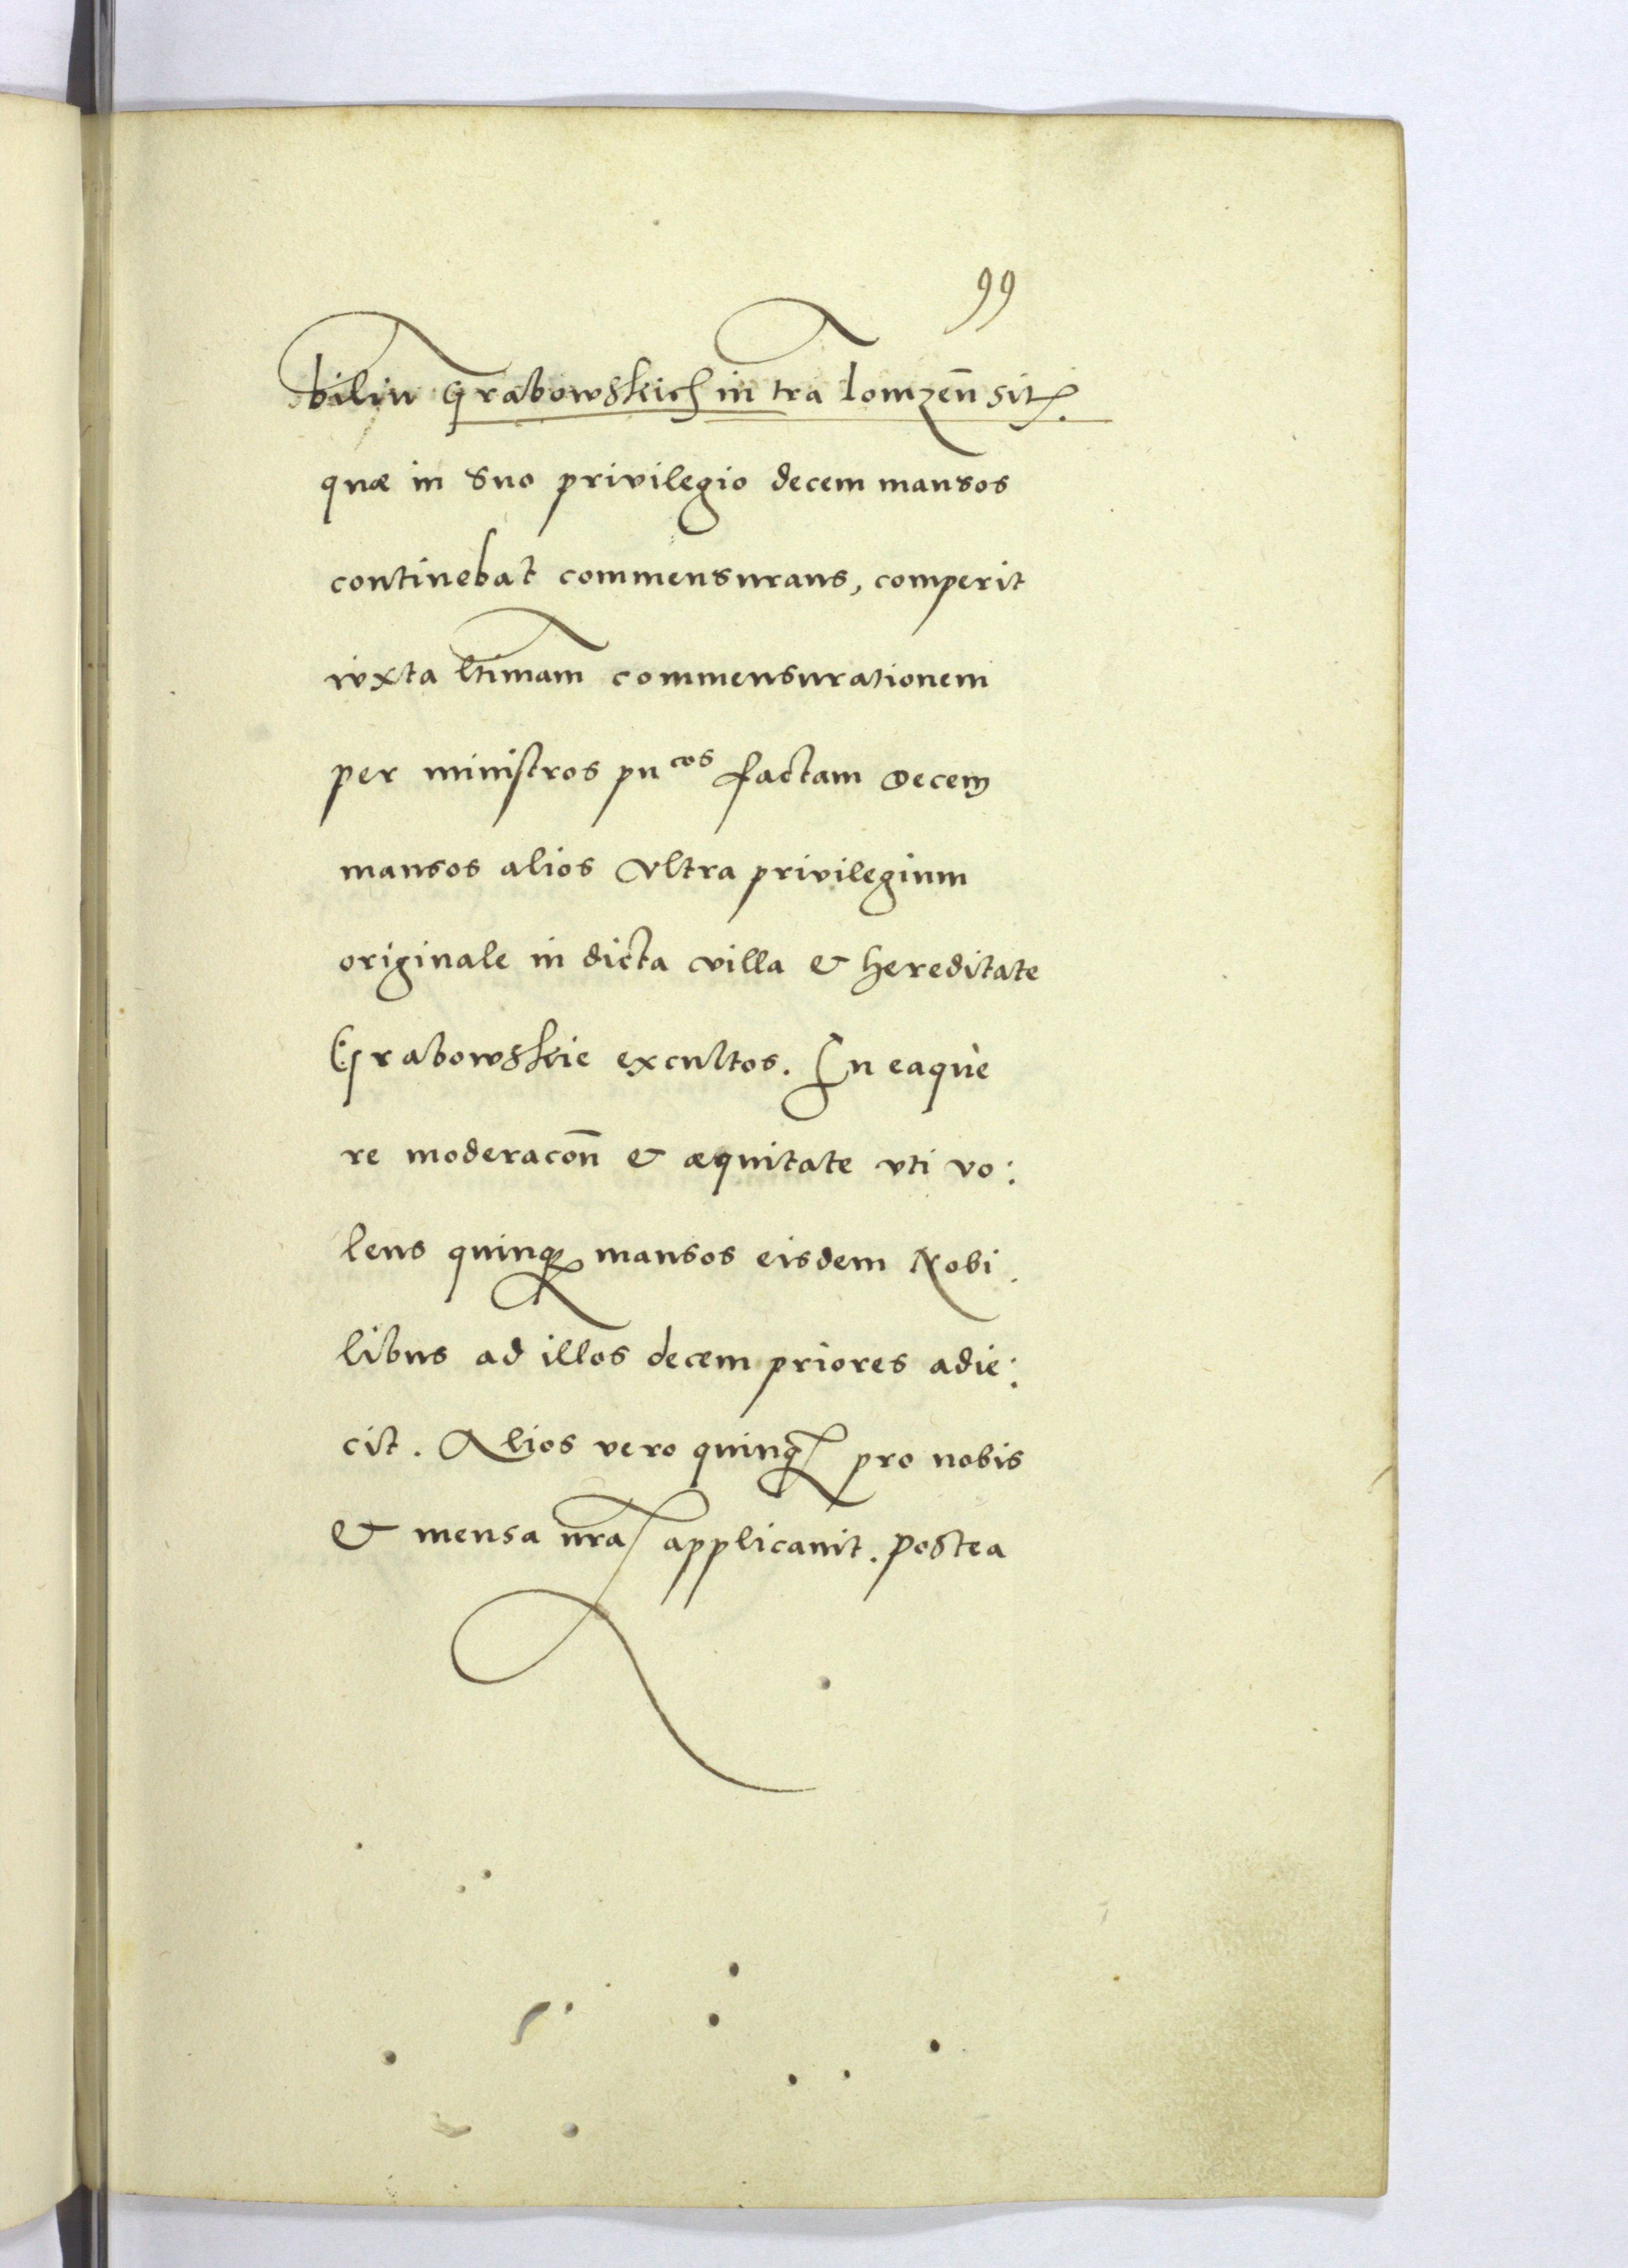 99
biliu Grabowskich in tra lomzen̄ sit.
quæ in suo privilegio decem mansos
continebat commensurans, comperit
iuxta ltimam commensurationem
per ministros pu cos factam decem
mansos alios Vltra privilegium
originale in dicta villa & hereditate
Grabowskie excultos. In eaque
re moderacon̄ & æquitate vti vo:
lens quinq mansos eisdem Nobi
libus ad illos decem priores adie:
cit. Alios vero quinq pro nobis
& mensa nra applicauit. Postea